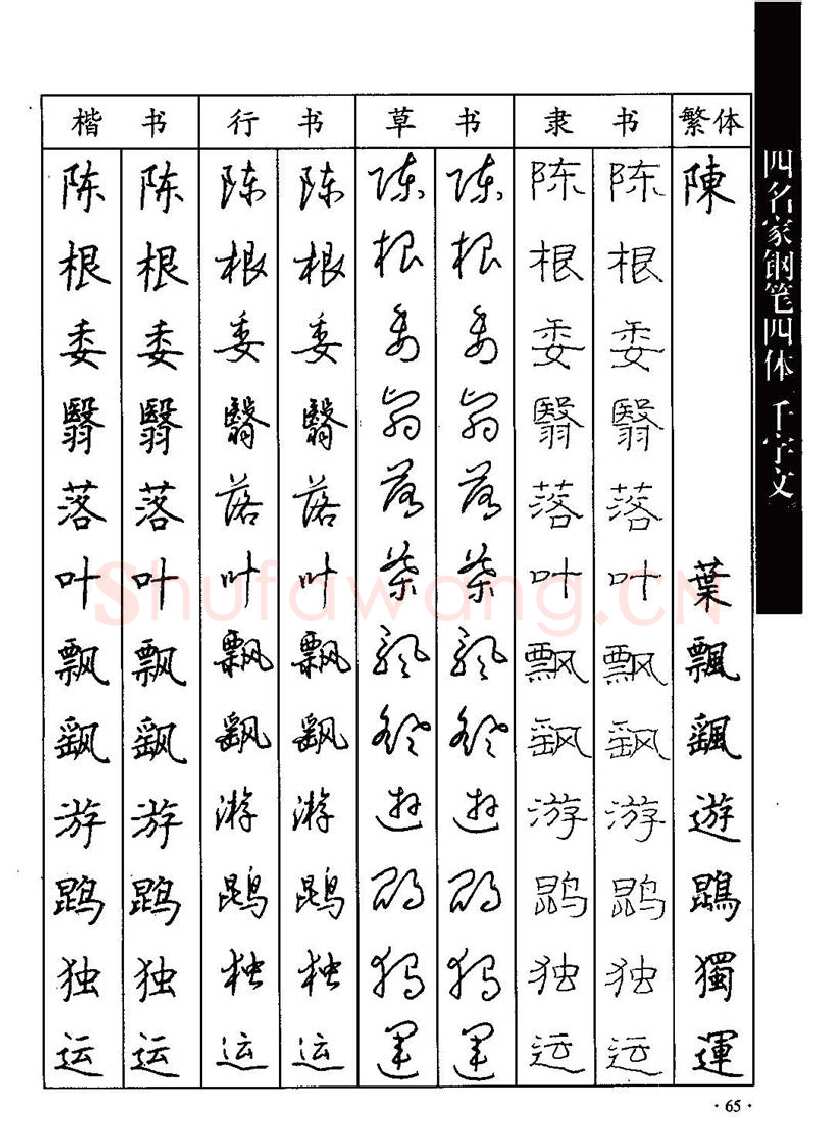 楷书 行书 草书 隶书 繁体
陈 陈 陈 陈 陈 陈 陈 陈 陳
根 根 根 根 根 根 根 根
委 委 委 委 委 委 委 委
翳 翳 翳 翳 翳 翳 翳 翳
落 落 落 落 落 落 落 落
叶 叶 叶 叶 葉 葉 叶 叶 葉
飘 飘 飘 飘 飘 飘 飘 飘 飄
飖 飖 飖 飖 飖 飖 飖 飖 颻
游 游 游 游 遊 遊 游 游 遊
鹍 鹍 鹍 鹍 鹍 鹍 鹍 鹍 鵾
独 独 独 独 獨 獨 独 独 獨
运 运 运 运 運 運 运 运 運
四名家钢笔四体 千字文
Shufawang.CN
·65·